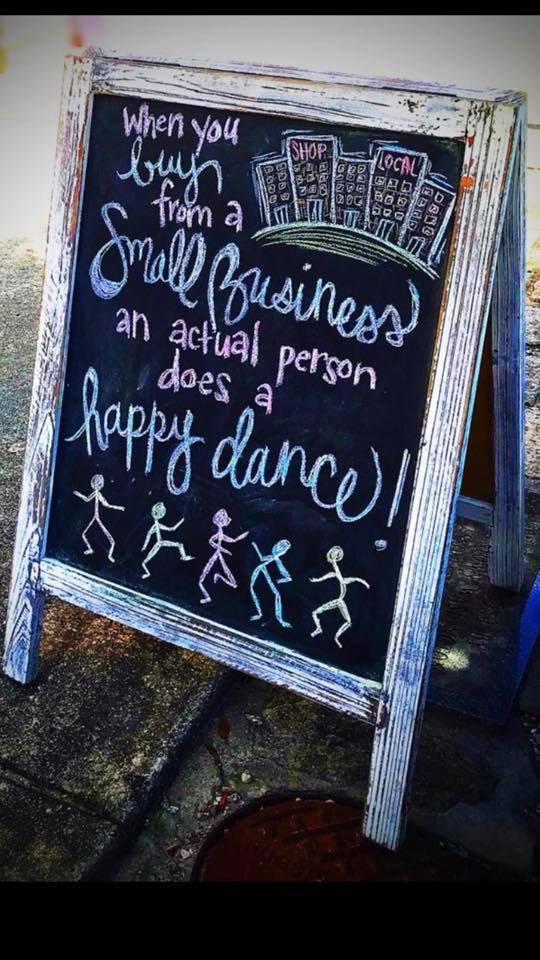 when you
buy
from a
SHOP LOCAL
Small Business
an actual person
does a
happy dance!